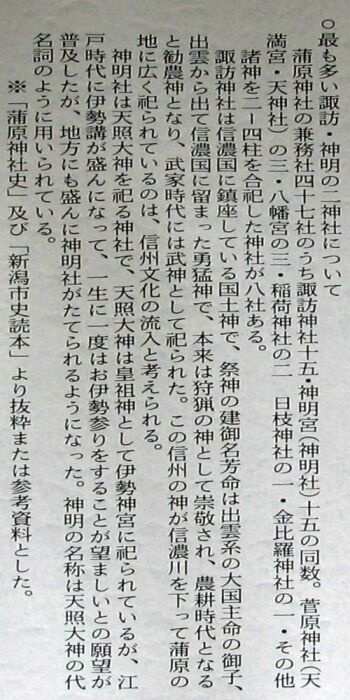 ○最も多い諏訪・神明の二神社について
蒲原神社の兼務社四十七社のうち諏訪神社十五・神明宮（神明社）十五の同数。菅原神社（天
満宮・天神社）の三・八幡宮の三・稲荷神社の二　日枝神社の一・金比羅神社の一・その他
諸神を二－四柱を合祀した神社が八社ある。
諏訪神社は信濃国に鎮座している国土神で、祭神の建御名芳命は出雲系の大国主命の御子、
出雲から出て信濃国に留まった勇猛神で、本来は狩猟の神として崇敬され、農耕時代となる
と勧農神となり、武家時代には武神として祀られた。この信州の神が信濃川を下って蒲原の
地に広く祀られているのは、信州文化の流入と考えられる。
神明社は天照大神を祀る神社で、天照大神は皇祖神として伊勢神宮に祀られているが、江
戸時代に伊勢講が盛んになって、一生に一度はお伊勢参りをすることが望ましいとの願望が
普及したが、地方にも盛んに神明社がたてられるようになった。神明の名称は天照大神の代
名詞のように用いられている。
※「蒲原神社史」及び「新潟市史読本」より抜粋または参考資料とした。